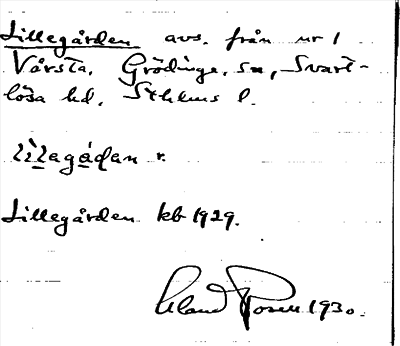 Lillegården avs. från nr 1
Vårsta, Grödinge sn, Svart-
lösa hd, Sthlms l.
lìlagá̱ɖan r.
Lillegården kb 1929.
Rosell 1930.